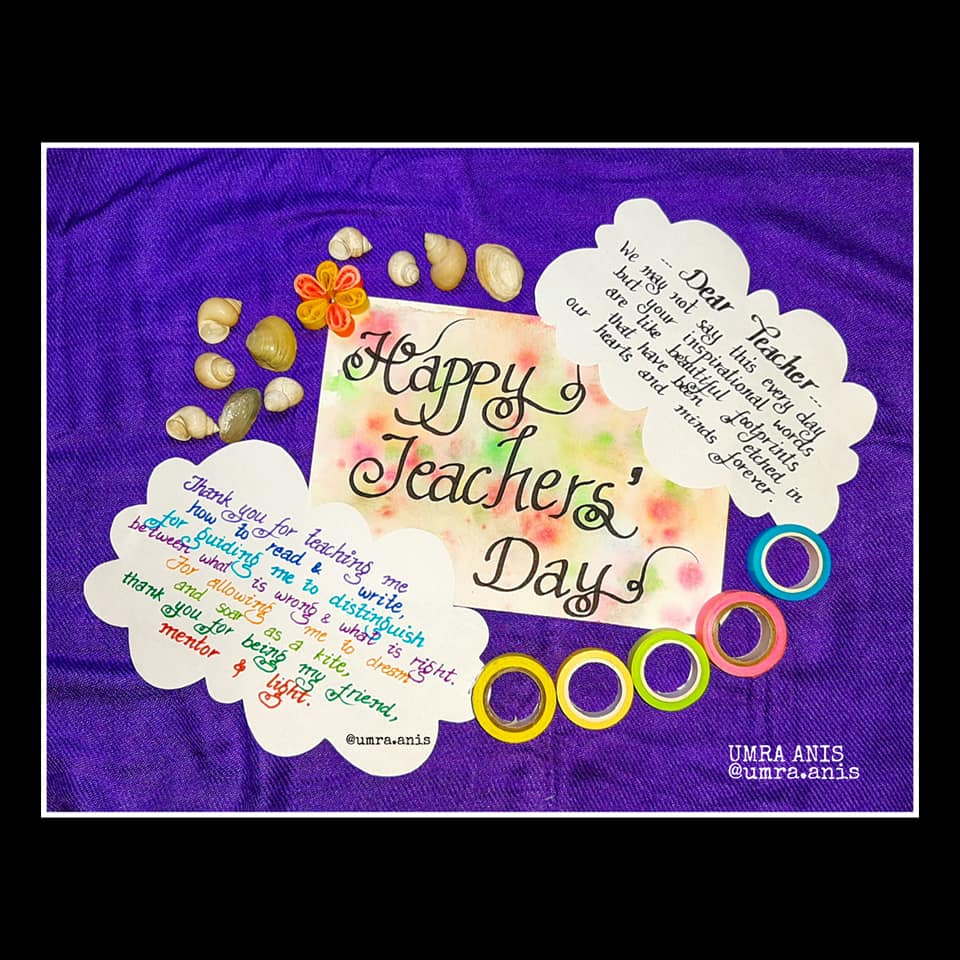 Happy
Teachers'
Day
--- Dear Teacher ---
We may not say this every day
but your inspirational words
are like beautiful footprints
that have been etched in
our hearts and minds forever.
Thank you for teaching me
how to read & write,
for guiding me to distinguish
between what is wrong & what is right.
For allowing me to dream
and soar as a kite,
thank you for being my friend,
mentor & light.
@umra.anis
UMRA ANIS
@umra.anis